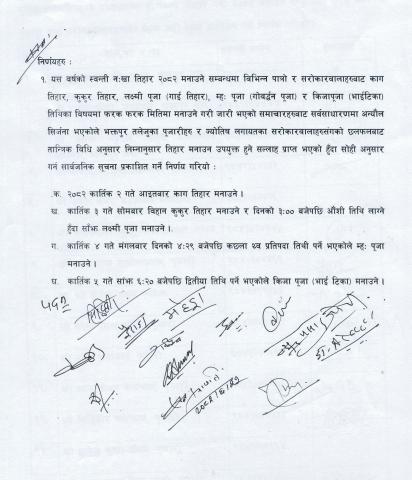 निर्णयहरु :
१. यस वर्षको स्वन्ती नःखा तिहार २०८२ मनाउने सम्बन्धमा विभिन्न पात्रो र सरोकारवालाहरुबाट काग
तिहार, कुकुर तिहार, लक्ष्मी पूजा (गाई तिहार), म्हः पूजा (गोबर्द्धन पूजा) र किजापूजा (भाईटिका)
तिथिका बिषयमा फरक फरक मितिमा मनाउने गरी जारी भएको समाचारहरुबाट सर्वसाधारणमा अन्यौल
सिर्जना भएकोले भक्तपुर तलेजुका पूजारीहरु र ज्योतिष लगायतका सरोकारवालाहरुसंगको छलफलबाट
तान्त्रिक विधि अनुसार निम्नानुसार तिहार मनाउन उपयुक्त हुने सल्लाह प्राप्त भएको हुँदा सोही अनुसार
गर्न सार्वजनिक सूचना प्रकाशित गर्ने निर्णय गरियो :
क. २०८२ कार्तिक २ गते आइतबार काग तिहार मनाउने ।
ख. कार्तिक ३ गते सोमबार बिहान कुकुर तिहार मनाउने र दिनको ३:०० बजेपछि औंशी तिथि लाग्ने
हुँदा साँझ लक्ष्मी पूजा मनाउने ।
ग. कार्तिक ४ गते मंगलबार दिनको ४:२९ बजेपछि कछला थ्व प्रतिपदा तिथी पर्ने भएकोले म्हः पूजा
मनाउने ।
घ. कार्तिक ५ गते साँझ ६:२० बजेपछि द्वितीया तिथि पर्ने भएकोले किजा पूजा (भाई टिका) मनाउने ।